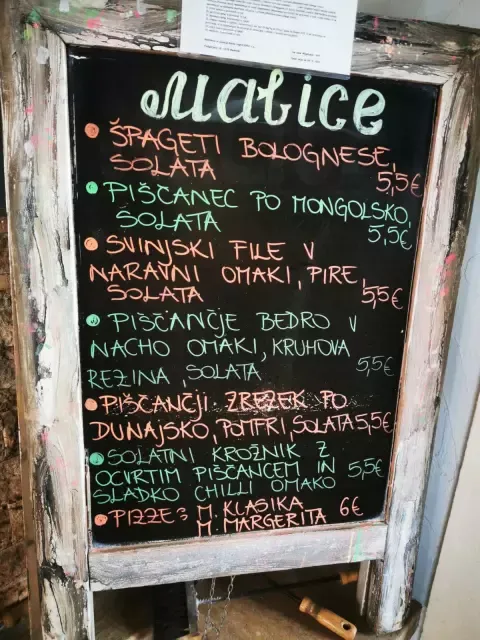 Malice
• ŠPAGETI BOLOGNESE,
SOLATA 5,5€
• PIŠČANEC PO MONGOLSKO,
SOLATA 5,5€
• SVINJSKI FILE V
NARAVNI OMAKI, PIRE,
SOLATA 5,5€
• PIŠČANČJE BEDRO V
NACHO OMAKI, KRUHOVA
REZINA, SOLATA 5,5€
• PIŠČANČJI ZREZEK PO
DUNAJSKO, POMFRI, SOLATA 5,5€
• SOLATNI KROŽNIK Z
OCVRTIM PIŠČANCEM IN 5,5€
SLADKO CHILLI OMAKO
• PIZZE: M. KLASIKA 6€
M. MARGERITA